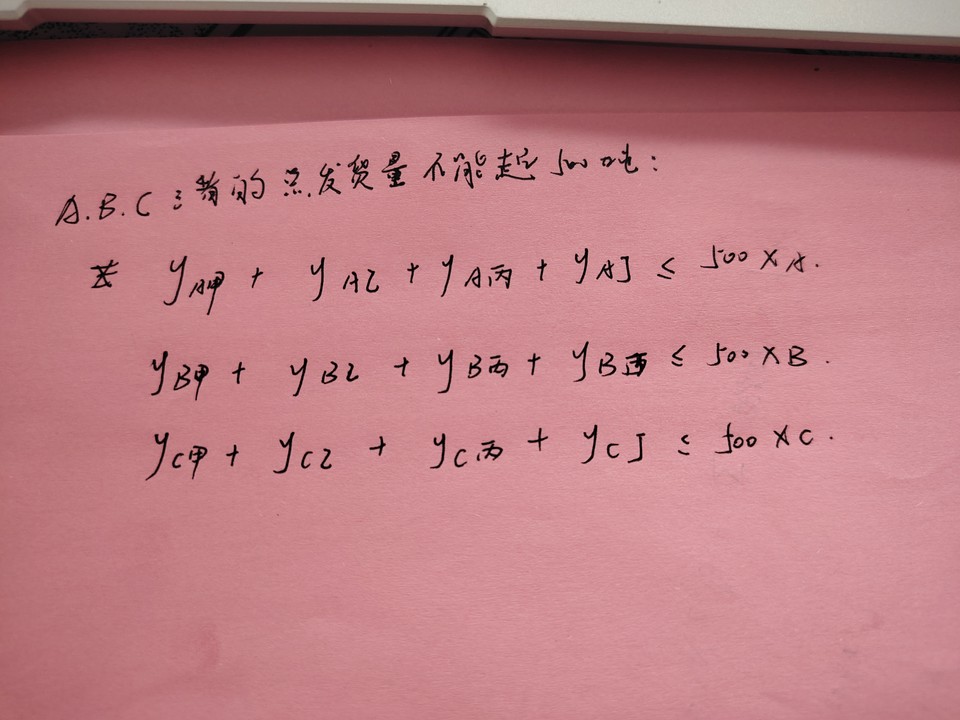 A.B.C三者的总发货量不能超500吨:
y_A甲 + y_A乙 + y_A丙 + y_A丁 ≤ 500 x_A.
y_B甲 + y_B乙 + y_B丙 + y_B ≤ 500 x_B.
y_C甲 + y_C乙 + y_C丙 + y_C丁 ≤ 500 x_C.